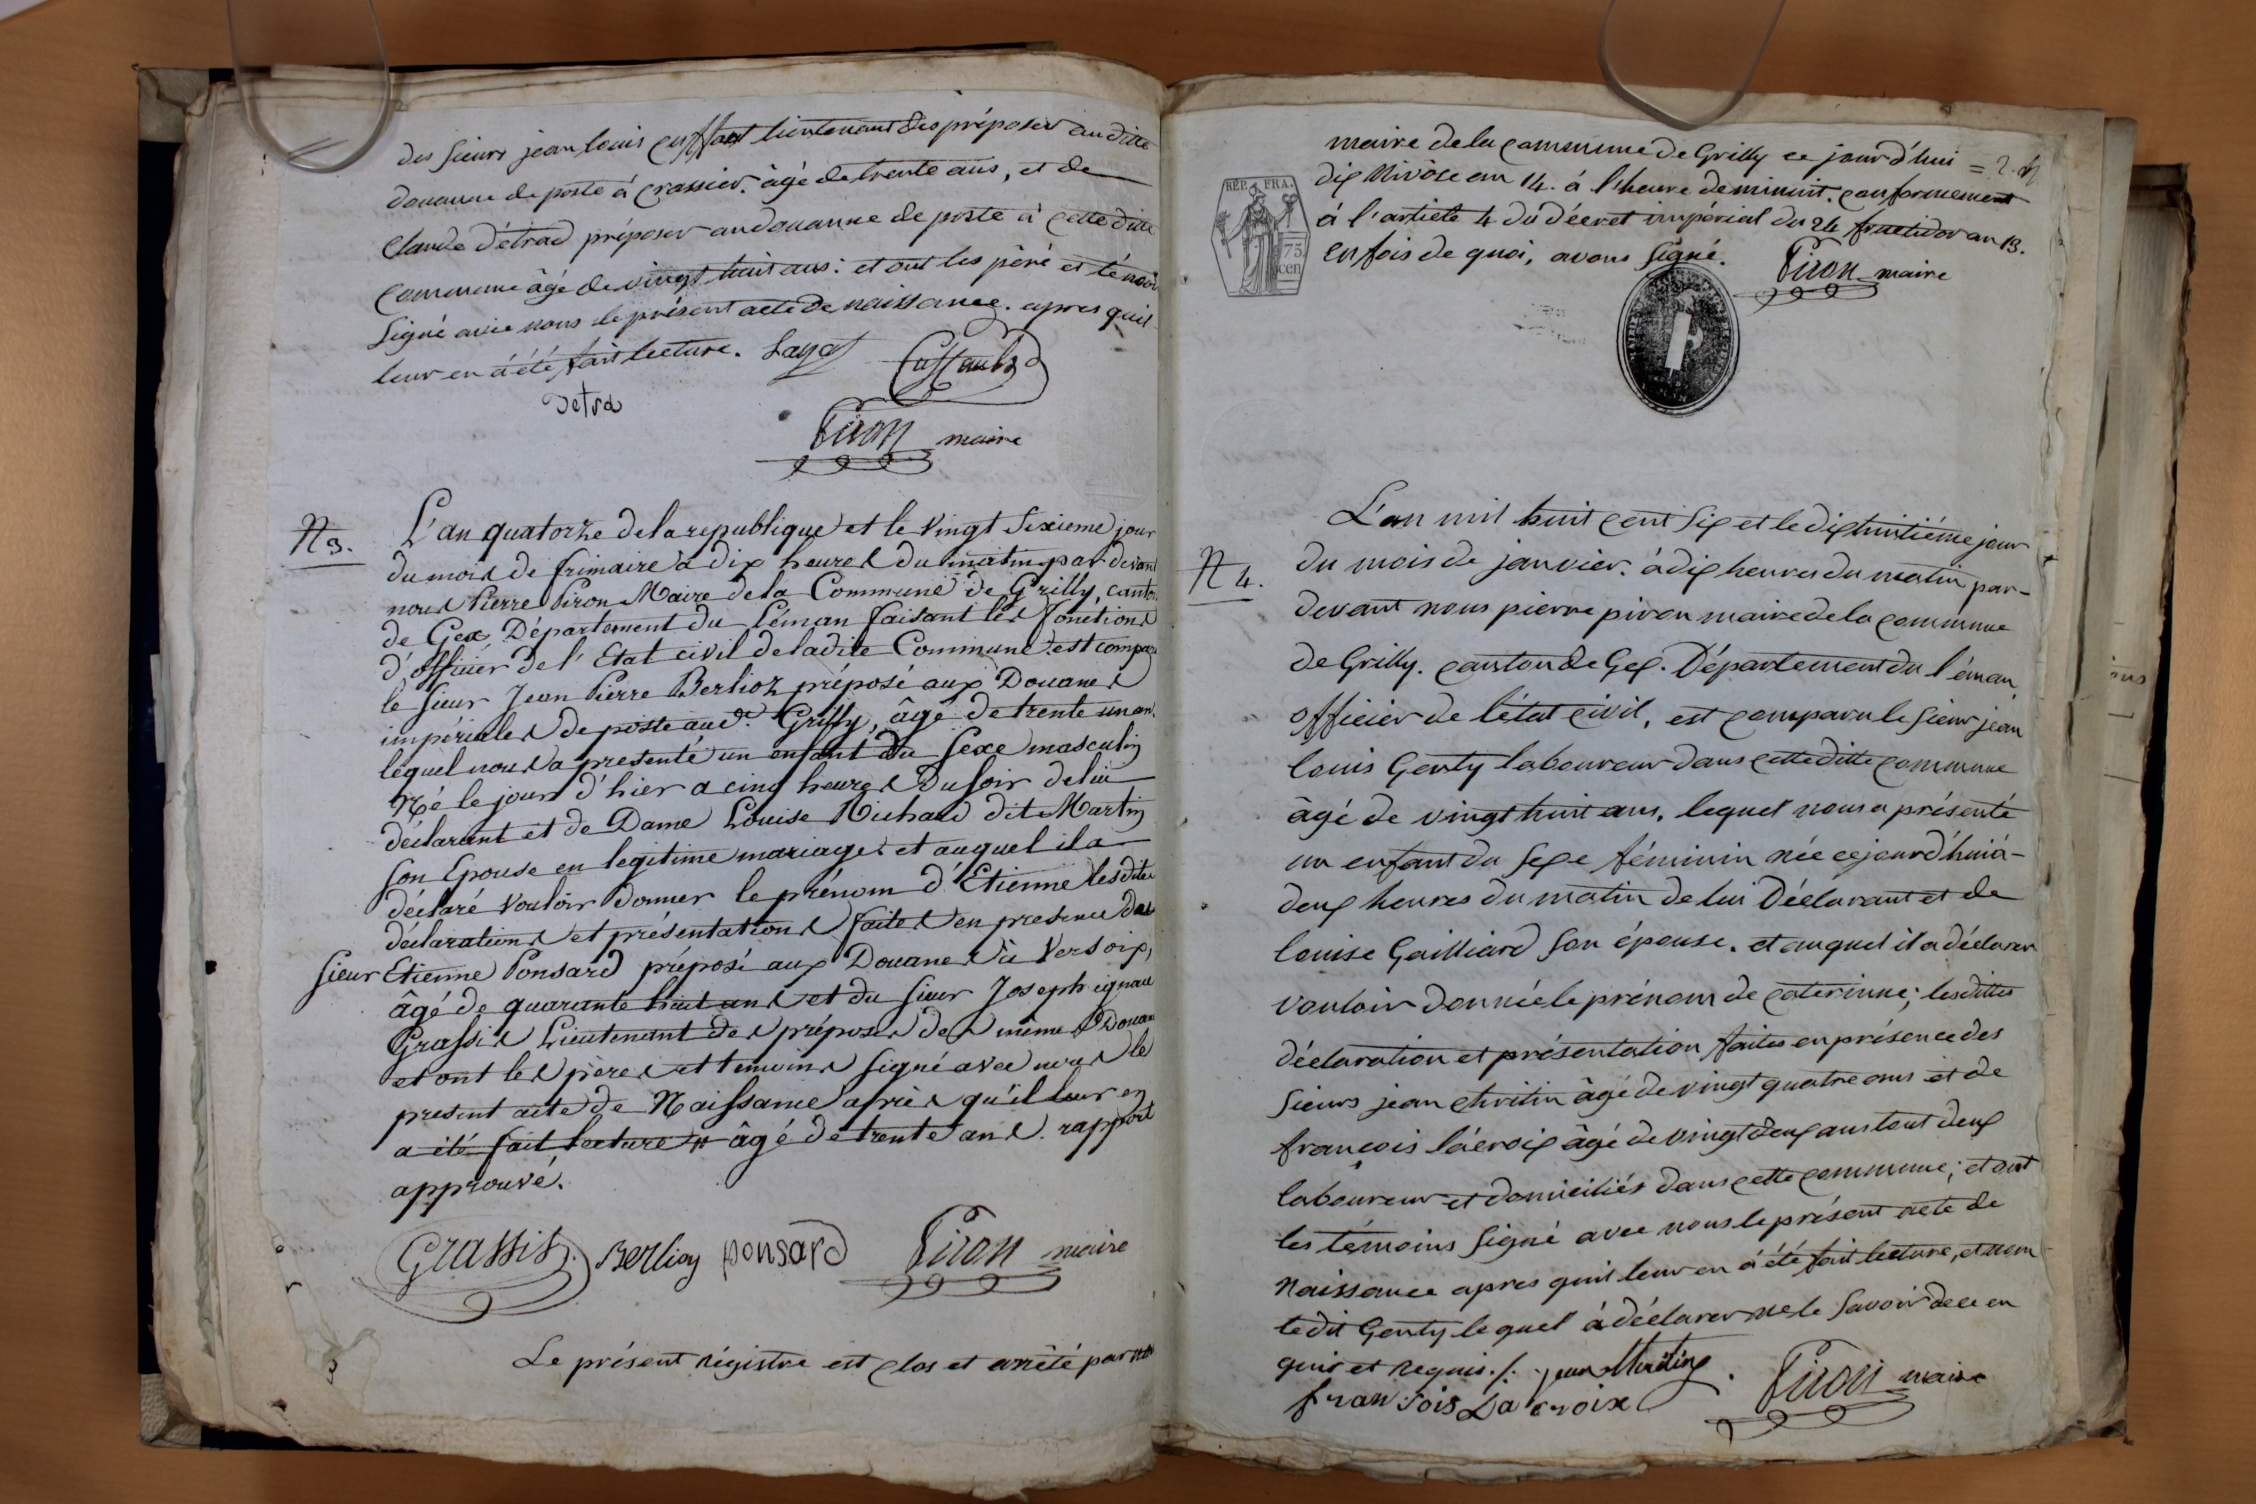 des sieurs jean louis cussaut lieutenant des préposer au ditte
douanne de poste à crassier. âgé de trente ans, et de
Claude détrad préposer au douanne de poste à cette ditte
commune âgé de vingt huit ans: et ont les péré et témoin
Signé avec nous le présent acte de naissance. apres quil
leur en à été fait lecture.
Detrad
Piron maire
N 3. L'an quatorze de la republique et le vingt Sixieme jour
du mois de frimaire à dix heures du matin par devant
nous Pierre Piron Maire de la Commune de Grilly, canton
de Gex Département du Léman faisant les fonctions
d'officier de l'Etat civil de ladite Commune est comparu
le sieur Jean Pierre Berlioz préposé aux Douanes
impériales de poste aud.t Grilly, âgé de trente un an.
lequel nous a presenté un enfant du Sexe masculin
Né le jour d'hier a cinq heures du soir de lui
déclarant et de Dame Louise Michaud dit Martin
son Epouse en legitime mariage et auquel il a
déclaré vouloir donner le prénom d'Etienne lesdites
déclarations et présentations faites en presence des
sieur Etienne Ponsard préposé aux Douanes à Versoix,
âgé de quarante huit ans et du sieur Joseph ignace
Grassis Lieutenant des préposés des mêmes Douanes
et ont les pères et temoins signé avec nous le
present acte de Naissance après qu'il leur en
a été fait lecture # âgé de trente ans. rapport
approuvé.
Grassis. Berlioz ponsard Piron maire
Le présent régistre est clos et arrêté par nous
maire de la commune de Grilly ce jour d'hui =
dix Nivôse an 14. à l'heure de minuit. conformement
à l'article 4 du décret impérial du 24 fructidor an 13.
en fois de quoi, avons Signé. Piron maire
RÉP. FRA.
75 cen
L'an mil huit cent Six et le dix huitiéme jour
N 4. du mois de janvier. à dix heures du matin par-
devant nous pierre piron maire de la commune
de Grilly. canton de Gex. Département du l'éman,
officier de l'état civil, est comparu le sieur jean
louis Genty laboureur dans cette ditte commune
âgé de vingt huit ans. lequel nous a présenté
un enfant du Sexe féminin née ce jourd'hui à-
deux heures du matin de lui Déclarant et de
louise Gailliard son épouse. et auquel il a déclarer
vouloir donnée le prénom de caterinne; les dittes
déclaration et présentation faites en présence des
sieurs jean âgé de vingt quatre ans et de
françois lacroix âgé de vingt deux ans tout deux
laboureur et domiciliés dans cette commune; et ont
les témoins Signé avec nous le présent acte de
Naissance apres quil leur en à été fait lecture, et non
ledit Genty lequel à déclarer ne le Savoir de ce en
quis et requis ./. jean
fransois La croix Piron maire